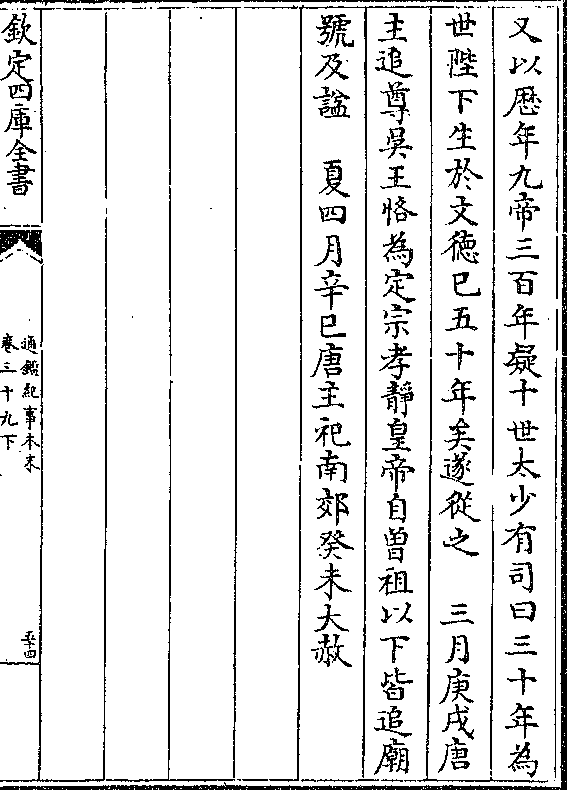 又以歴年九帝三百年疑十世太少有司曰三十年為
世陛下生於文徳已五十年矣遂從之　三月庚戌唐
主追尊吳王恪為定宗孝靜皇帝自曾祖以下皆追廟
號及諡　夏四月辛巳唐主祀南郊癸未大赦
欽定四庫全書
通鑑紀事本末
卷三十九下
五十四